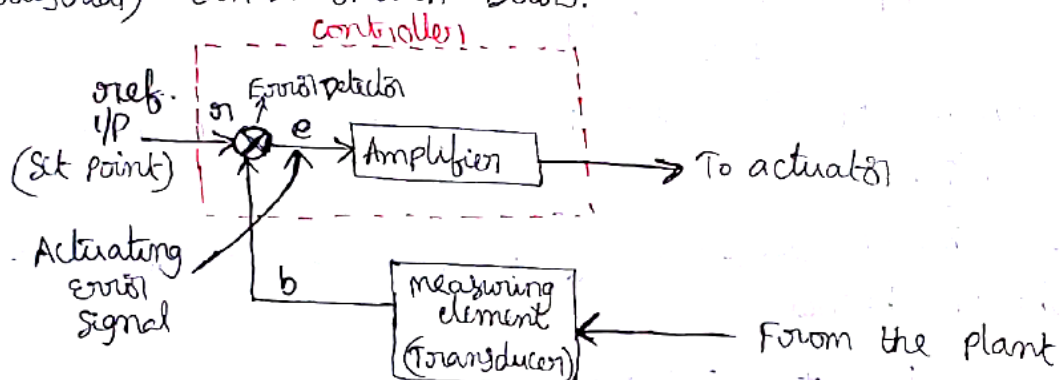 controller
Error Detector
ref.
I/P
(Set Point)
r
e
Amplifier
To actuator
Actuating
error
Signal
b
measuring
element
(Transducer)
From the plant